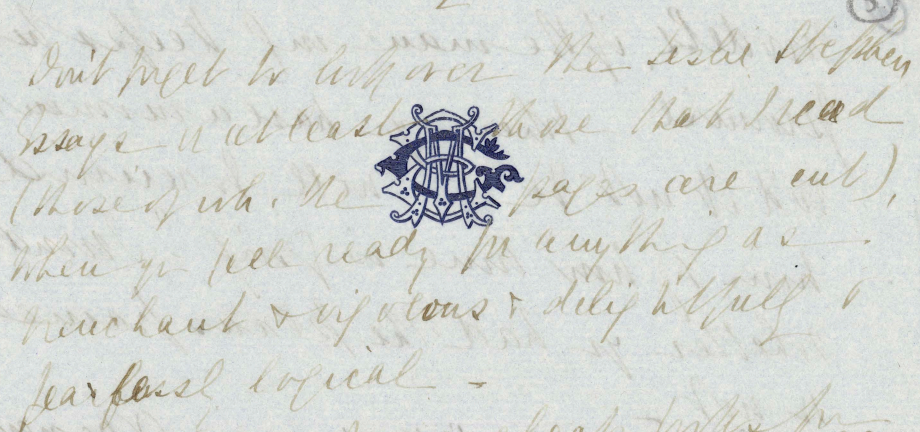 Don't forget to look over the Leslie Stephen
Essays or at least those that I read
(those of wh. the pages are cut),
when yr feel ready for anything as
trenchant & vigorous & delightfully &
fearlessly logical -